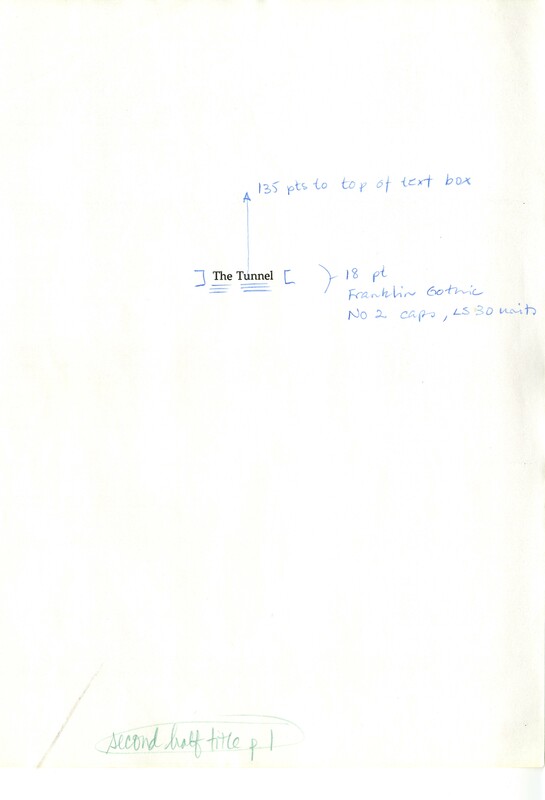 135 pts to top of text box
The Tunnel
18 pt
Franklin Gothic
No 2 caps, LS 30 units
second half title p 1